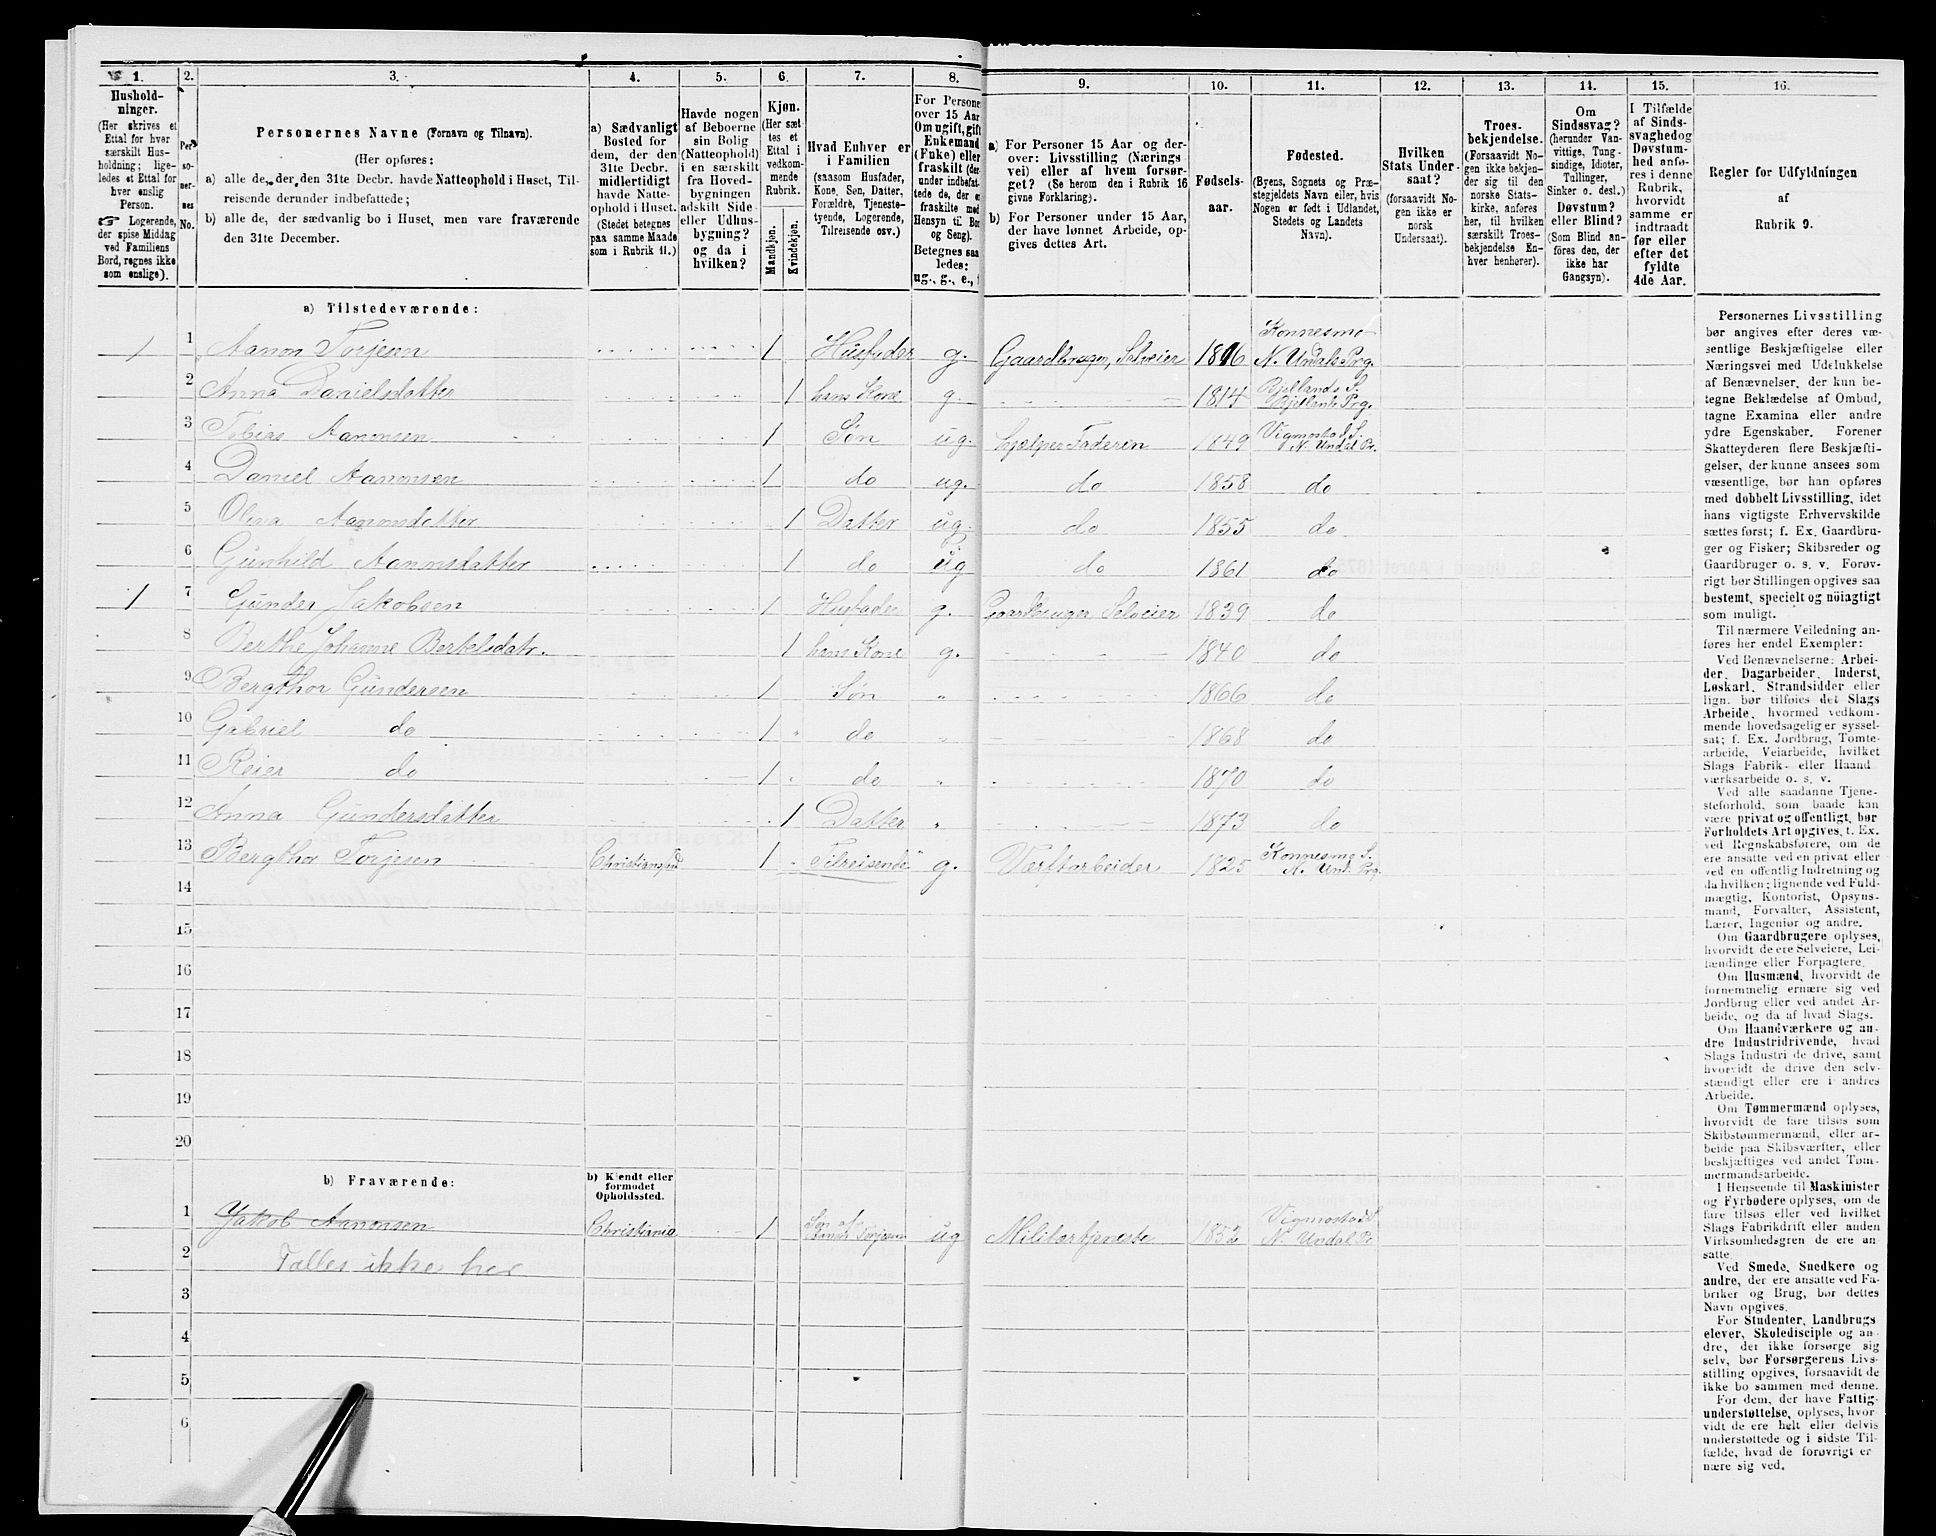 1.
Husholdninger.
(Her skrives et
Ettal for hver
særskilt Husholdning; ligeledes et Ettal for
hver enslig
Person.
☞ Logerende,
der spise Middag
ved Familiens
Bord, regnes ikke
som enslige).
2.
Personernes
No.
3.
Personernes Navne (Fornavn og Tilnavn).
(Her opføres:
a) alle de, der den 31te Decbr. havde Natteophold i Huset, Tilreisende derunder indbefattede;
b) alle de, der sædvanlig bo i Huset, men vare fraværende
den 31te December.
4.
a) Sædvanligt
Bosted for
dem, der den
31te Decbr.
midlertidigt
havde Natteophold i Huset.
(Stedet betegnes
paa samme Maade
som i Rubrik 11.)
5.
Havde nogen
af Beboerne
sin Bolig
(Natteophold)
i en særskilt
fra Hovedbygningen
adskilt Side
eller Udhusbygning?
og da i
hvilken?
6.
Kjøn.
(Her sættes et
Ettal i
vedkommende
Rubrik.
Mandkjøn.
Kvindekjøn.
7.
Hvad Enhver er
i Familien
(saasom Husfader,
Kone, Søn, Datter,
Forældre, Tjenestetyende, Logerende,
Tilreisende osv.)
8.
For Persone
over 15 Aar
Om ugift, gift
Enkemand
(Enke) eller
fraskilt (derunder indbefattede de, der er
fraskilte med
Hensyn til Bor
og Seng).
Betegnes saaledes:
ug., g., e.,
9.
a) For Personer 15 Aar og derover: Livsstilling (Næringsvei) eller af hvem forsørget? (Se herom den i Rubrik 16
givne Forklaring).
b) For Personer under 15 Aar,
der have lønnet Arbeide, opgives dettes Art.
10.
Fødselsaar.
11.
Fødested.
(Byens, Sognets og Præstegjeldets Navn eller, hvis
Nogen er født i Udlandet,
Stedets og Landets
Navn).
12.
Hvilken
Stats Undersaat?
(forsaavidt Nogen ikke er
norsk
Undersaat).
13.
Troesbekjendelse.
(Forsaavidt Nogen ikke bekjender sig til den
norske Statskirke, anføres
her, til hvilket
særskilt Troesbekjendelse Enhver henhører).
14.
Om
Sindssvag?
(herunder Vanvittige, Tungsindige, Idioter,
Tullinger,
Sinker o. desl.)
Døvstum?
eller Blind?
(Som Blind anføres den, der
ikke har
Gangsyn).
15.
I Tilfælde
af Sindssvaghed og
Døvstumhed anføres i denne
Rubrik,
hvorvidt
samme er
indtraadt
før eller
efter det
fyldte
4de Aar.
16.
Regler for Udfyldningen
af
Rubrik 9.
a) Tilstedeværende:
1 1 Aanon Torjesen 1 Husfader g. Gaardbruger, Selveier 1816 Konnesmo N. Undals Prg.
2 Anna Danielsdatter 1 hans Kone g. 1814 Bjellands S. Bjellands Prg.
3 Tobias Aanonsen 1 Søn ug. hjælper Faderen 1849 Vigmostad S. N. Undal Pr.
4 Daniel Aanonsen 1 do ug. do 1858 do
5 Olina Aanonsdatter 1 Datter ug. do 1855 do
6 Gunhild Aanonsdatter 1 do ug do 1861 do
1 7 Gunder Jakobsen 1 Husfader g. Gaardbruger Selveier 1839 do
8 Berthe Johanne Bertelsdatr. 1 hans Kone g. 1840 do
9 Bergthor Gundersen 1 Søn " 1866 do
10 Gabriel do 1 " do " 1868 do
11 Reier do 1 " do " 1870 do
12 Anna Gundersdatter 1 Datter " 1873 do
13 Bergthor Torjesen Christiansand 1 " Tilreisende g. Værftarbeider 1825 Konnesmo S. N. Und. Prg.
14
15
16
17
18
19
20
b) Fraværende:
b) Kjendt eller
formodet
Opholdssted.
1 Jakob Aanonsen Christiania 1 Søn af Aanon Torjesen ug Militærtjeneste 1852 Vigmostad S. N. Undal Pr
2 Tælles ikke her
3
4
5
6
Personernes Livsstilling
bør angives efter deres væsentlige Beskjæftigelse eller
Næringsvei med Udelukkelse
af Benævnelser, der kun betegne Beklædelse af Ombud,
tagne Examina eller andre
ydre Egenskaber. Forener
Skatteyderen flere Beskjæftigelser, der kunne ansees som
væsentlige, bør han opføres
med dobbelt Livsstilling, idet
hans vigtigste Erhvervskilde
sættes først; f. Ex. Gaardbruger og Fisker; Skibsreder og
Gaardbruger o. s. v. Forøvrigt bør Stillingen opgives saa
bestemt, specielt og nøiagtigt
som muligt.
Til nærmere Veiledning anføres her endel Exempler:
Ved Benævnelserne: Arbeider, Dagarbeider, Inderst,
Løskarl, Strandsidder eller
lign. bør tilføies det Slags
Arbeide, hvormed vedkommende hovedsagelig er sysselsat; f. Ex. Jordbrug, Tomtearbeide, Veiarbeide, hvilket
Slags Fabrik- eller Haandværksarbeide o. s. v.
Ved alle saadanne Tjenesteforhold, som baade kan
være privat og offentligt, bør
Forholdets Art opgives, t. Ex.
ved Regnskabsførere, om de
ere ansatte ved en privat eller
ved en offentlig Indretning og
da hvilken; lignende ved Fuldmægtig, Kontorist, Opsynsmand, Forvalter, Assistent,
Lærer, Ingeniør og andre.
Om Gaardbrugere oplyses,
hvorvidt de ere Selveiere, Leilændinge eller Forpagtere.
Om Husmænd, hvorvidt de
fornemmelig ernære sig ved
Jordbrug eller ved andet Arbeide, og da af hvad Slags.
Om Haandværkere og andre Industridrivende, hvad
Slags Industri de drive, samt
hvorvidt de drive den selvstændigt eller ere i andres
Arbeide.
Om Tømmermænd oplyses,
hvorvidt de fare tilsøs som
Skibstømmermænd, eller arbeide paa Skibsværfter, eller
beskjæftiges ved andet Tømmermandsarbeide.
I Henseende til Maskinister
og Fyrbødere oplyses, om de
fare tilsøs eller ved hvilket
Slags Fabrikdrift eller anden
Virksomhedsgren de ere ansatte.
Ved Smede, Snedkere og
andre, der ere ansatte ved Fabriker og Brug, bør dettes
Navn opgives.
For Studenter, Landbrugselever, Skoledisciple og andre, der ikke forsørge sig
selv, bør Forsørgerens Livsstilling opgives, forsaavidt de
ikke bo sammen med denne.
For dem, der have Fattigunderstøttelse, oplyses, hvorvidt de ere helt eller delvis
understøttede og i sidste Tilfælde, hvad de forøvrigt ernære sig ved.